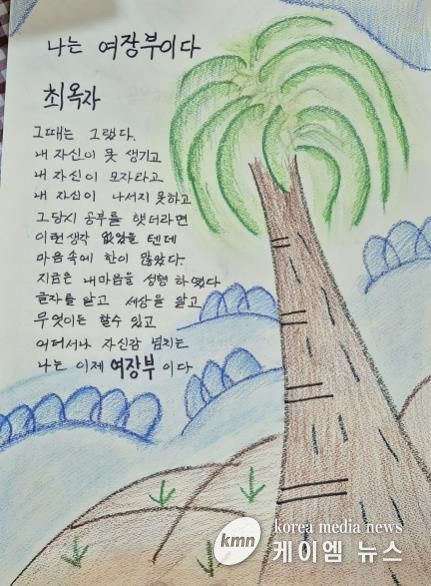 나는 여장부이다
최옥자
그때는 그랬다.
내 자신이 못 생기고
내 자신이 모자라고
내 자신이 나서지 못하고
그당시 공부를 했더라면
이런생각 없었을 텐데
마음속에 한이 많았다.
지금은 내마음을 성형 하였다
글자를 알고 세상을 알고
무엇이든 할수 있고
어더서나 자신감 넘치는
나는 이제 여장부 이다
kmn
korea media news
케이엠 뉴스